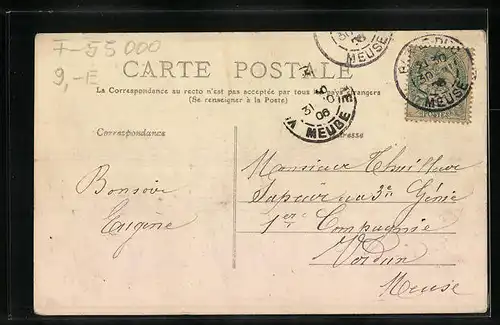 F-55000
9,-E
CARTE POSTALE
La Correspondance au recto n'est pas acceptée par tous les pays étrangers
(Se renseigner à la Poste)
MEUSE
MEUSE
MEUSE
Correspondance
Adresse
Bonsoir
Eugène
Monsieur Thuillier
Sapeur au 3e Génie
1ère Compagnie
Verdun
Meuse